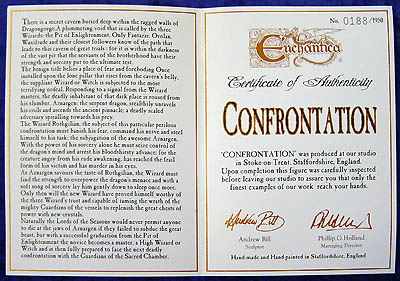 There is a secret cavern buried deep within the ragged walls of
Dragongorge. A plummeting void that is called by the three
Wizards: the Pit of Enlightenment. Only Fantazar, Orolan,
Waxifrade and their closest followers know of the path that
leads to this cavern of great trials: for it is within the darkness
of the vast pit that the servants of the brotherhood have their
strength and sorcery put to the ultimate test.
The benign titles before a place of fear and foreboding. Once
installed upon the lone pillar that rises from the cavern's belly,
the suppliant Wizard or Witch is subjected to the most
terrifying ordeal. Responding to a signal from the Wizard
masters, the deadly inhabitant of that dark place is roused from
his slumber. Amazgen: the serpent dragon, stealthily unravels
his coils and ascends the ancient pinnacle; a deadly scaled
adversary spiralling towards his prey.
The Wizard Rothgilian, the subject of this particular perilous
confrontation must banish his fear, command his nerve and story
himself to his task; the subjugation of the awesome Amazgen.
With the power of his sorcery alone he must seize control of
the dragon's mind and arrest his bloodthirsty advance: for the
creature angry from its rude awakening, has reached the frail
form of his victim and has murder in his eyes.
As Amazgen savours the taste of Rothgilian, the Wizard must
find the strength to overpower the dragon's menace and with a
soft song of sorcery lay him gently down to sleep once more.
Only then will the new Wizard have proved himself worthy of
the three Wizard's trust and capable of taming the wrath of the
mighty Guardians of the vessels to replenish the great chests of
power with new crystals.
Naturally the Lords of the Seasons would never permit anyone
to die at the jaws of Amazgen if they failed to subdue the great
beast, but with a successful graduation from the Pit of
Enlightenment the novice becomes a master, a High Wizard or
Witch and is then fully prepared to face the next deadly
confrontation with the Guardians of the Sacred Chamber.
No. 0188/1950
Enchantica
Certificate of Authenticity
CONFRONTATION
"CONFRONTATION" was produced at our studio
in Stoke-on-Trent, Staffordshire, England.
Upon completion this figure was carefully inspected
before leaving our studio to assure you that only the
finest examples of our work reach your hands.
Andrew Bill
Andrew Bill
Sculptor
Phillip, G. Holland
Managing Director
Hand made and Hand painted in Staffordshire, England